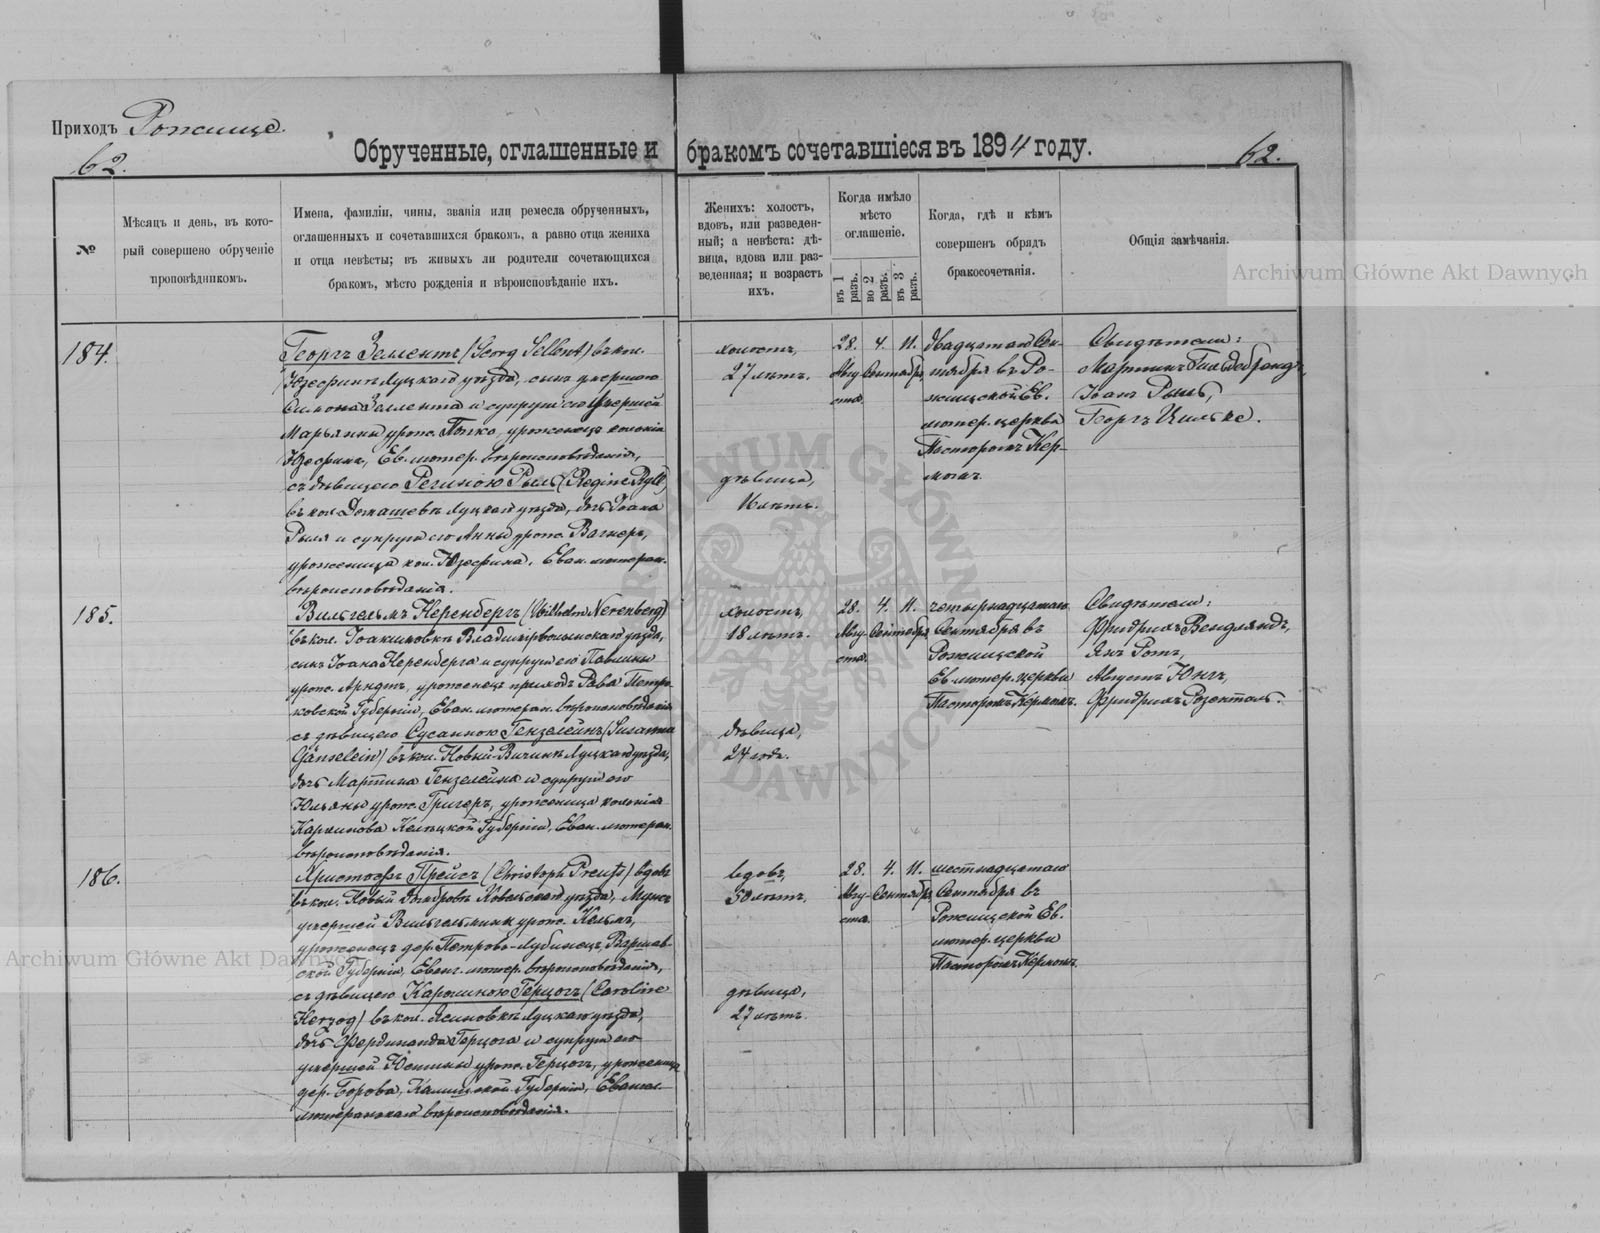 Приходъ Рожище.
62.
Обрученные, оглашенные и бракомъ сочетавшіеся въ 1894 году.
62.
№
Мѣсяцъ и день, въ кото-
рый совершено обрученіе
проповѣдникомъ.
Имена, фамиліи, чины, званія или ремесла обрученныхъ,
оглашенныхъ и сочетавшихся бракомъ, а равно отца жениха
и отца невѣсты; въ живыхъ ли родители сочетающихся
бракомъ, мѣсто рожденія и вѣроисповѣданіе ихъ.
Женихъ: холостъ,
вдовъ, или разведен-
ный; а невѣста: дѣ-
вица, вдова или раз-
веденная; и возрастъ
ихъ.
Когда имѣло
мѣсто
оглашеніе.
въ 1 разъ.
во 2 разъ.
въ 3 разъ.
Когда, гдѣ и кѣмъ
совершенъ обрядъ
бракосочетанія.
Общія замѣчанія.
184.
Георгъ Зелентъ (Georg Sellent) въ кол.
Юзефинѣ Луцкаго уѣзда, сынъ умершаго
Симона Зелента и супруги его умершей
Марьянны урож. Попко, уроженецъ колоніи
Юзефинъ, Ев. лютер. вѣроисповѣданія,
съ дѣвицею Региною Рыль (Regine Ryll)
въ кол. Домашевѣ Луцкаго уѣзда, дочь Іоана
Рыля и супруги его Анны урож. Вагнеръ,
уроженица кол. Юзефина, Еван. лютеран.
вѣроисповѣданія.
холостъ,
27 лѣтъ.
дѣвица,
16 лѣтъ.
28. 4. 11.
Авгу- Сентября,
ста.
двадцатаго Сен-
тября въ Ро-
жищской Ев.
лютер. церкви
Пасторомъ Кер-
момъ.
Свидѣтели:
Мартинъ Гильдебрандъ,
Іоанъ Рыль,
Георгъ Цильке.
185.
Вильгельмъ Неренбергъ (Wilhelm Nerenberg)
въ кол. Іоакимовкѣ Владимірволынскаго уѣзда,
сынъ Іоана Неренберга и супруги его Павлины
урож. Арндтъ, уроженецъ приходъ Рава Петро-
ковской Губерніи, Еван. лютеран. вѣроисповѣданія
съ дѣвицею Сусанною Гензелейнъ (Susanna
Gänselein) въ кол. Новый-Вичинѣ Луцкаго уѣзда,
дочь Мартина Гензелейна и супруги его
Юльяны урож. Григеръ, уроженица колоніи
Кѣлецкой Губерніи, Еван. лютеран.
вѣроисповѣданія.
холостъ,
18 лѣтъ.
дѣвица,
24 годъ.
28. 4. 11.
Авгу- Сентября,
ста.
четырнадцатаго
Сентября въ
Рожищской
Ев. лютер. церкви
Пасторомъ Кермомъ.
Свидѣтели:
Фридрихъ Вендляндъ,
Янъ Ротъ,
Августъ Юнгъ,
Фридрихъ Розенталь.
186.
Христофъ Прейсъ (Christoph Preuß) вдовъ
въ кол. Новый Домбровѣ Ковельскаго уѣзда, мужъ
умершей Вильгельмины урож. Кельмъ,
уроженецъ дер. Петрово-Лубинецъ, Варшав-
ской Губерніи, Еванг. лютер. вѣроисповѣданія,
съ дѣвицею Каролиною Герцогъ (Caroline
Herzog) въ кол. Ясиновкѣ Луцкаго уѣзда,
дочь Фердинанда Герцога и супруги его
умершей Юстины урож. Герцогъ, уроженица
дер. Борова, Калишской Губерніи, Евангел.
лютеранскаго вѣроисповѣданія.
вдовъ,
50 лѣтъ,
дѣвица,
27 лѣтъ.
28. 4. 11.
Авгу- Сентября,
ста.
шестнадцатаго
Сентября въ
Рожищской Ев.
лютер. церкви
Пасторомъ Кермомъ.
Archiwum Główne Akt Dawnych
Archiwum Główne Akt Dawnych
ARCHIWUM GŁÓWNE AKT DAWNYCH